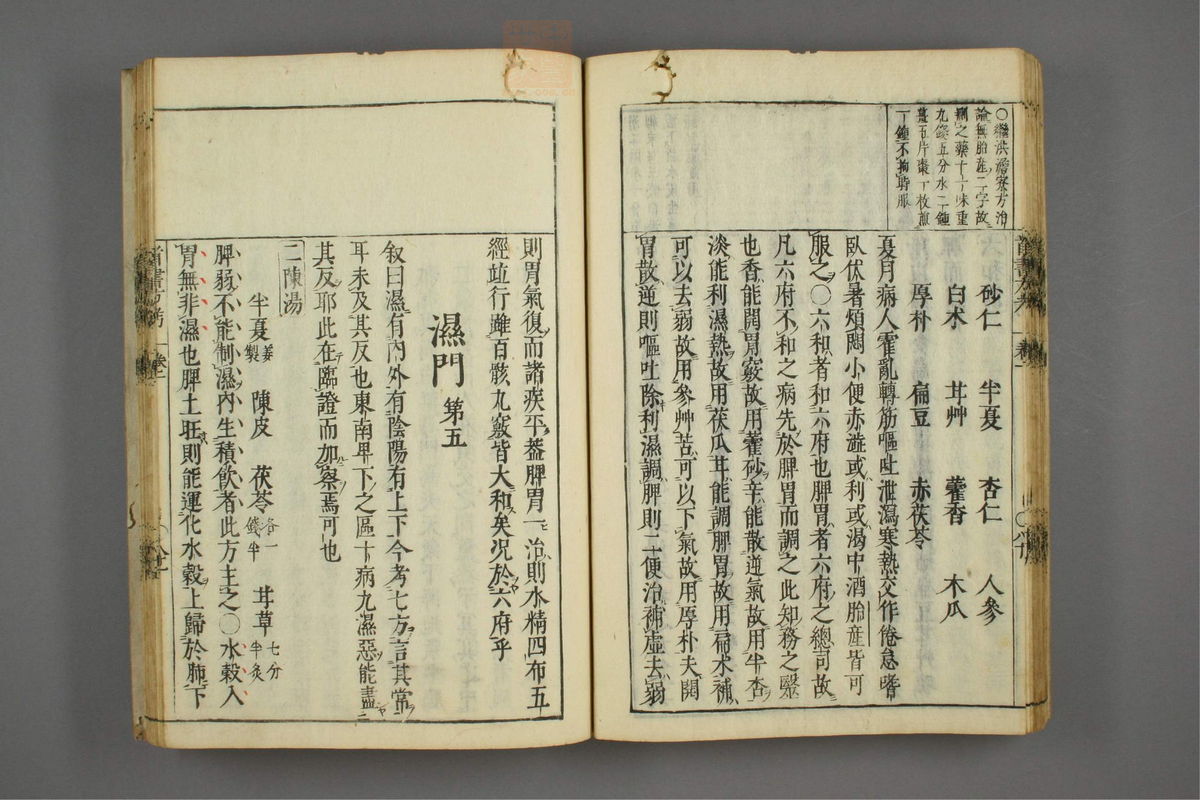 ○繼洪澹寮方治
論無胎產二字故
劑之藥十一味重
九錢五分水二鍾
薑五片棗一枚煎
一鍾不拘時服
砂仁 半夏 杏仁 人參
白朮 甘艸 藿香 木瓜
厚朴 扁豆 赤茯苓
夏月病人霍亂轉筋嘔吐泄瀉寒熱交作倦怠嗜
臥伏暑煩悶小便赤澁或利或渴中酒胎產皆可
服之○六和者和六府也脾胃者六府之總司故
凡六府不和之病先於脾胃而調之此知務之醫
也香能開胃竅故用藿砂辛能散逆氣故用半杏
淡能利濕熱故用茯瓜甘能調脾胃故用扁朮補
可以去弱故用參艸苦可以下氣故用厚朴夫開
胃散逆則嘔吐除利濕調脾則二便治補虛去弱
則胃氣復而諸疾平蓋脾胃一治則水精四布五
經並行雖百骸九竅皆大和矣況於六府乎
濕門第五
叙曰濕有內外有陰陽有上下今考七方言其常
耳未及其反也東南卑下之區十病九濕惡能盡
其反耶此在臨證而加察焉可也
二陳湯
半夏姜製 陳皮 茯苓各一錢半 甘草七分半炙
脾弱不能制濕內生積飲者此方主之○水穀入
胃無非濕也脾土旺則能運化水穀上歸於肺下